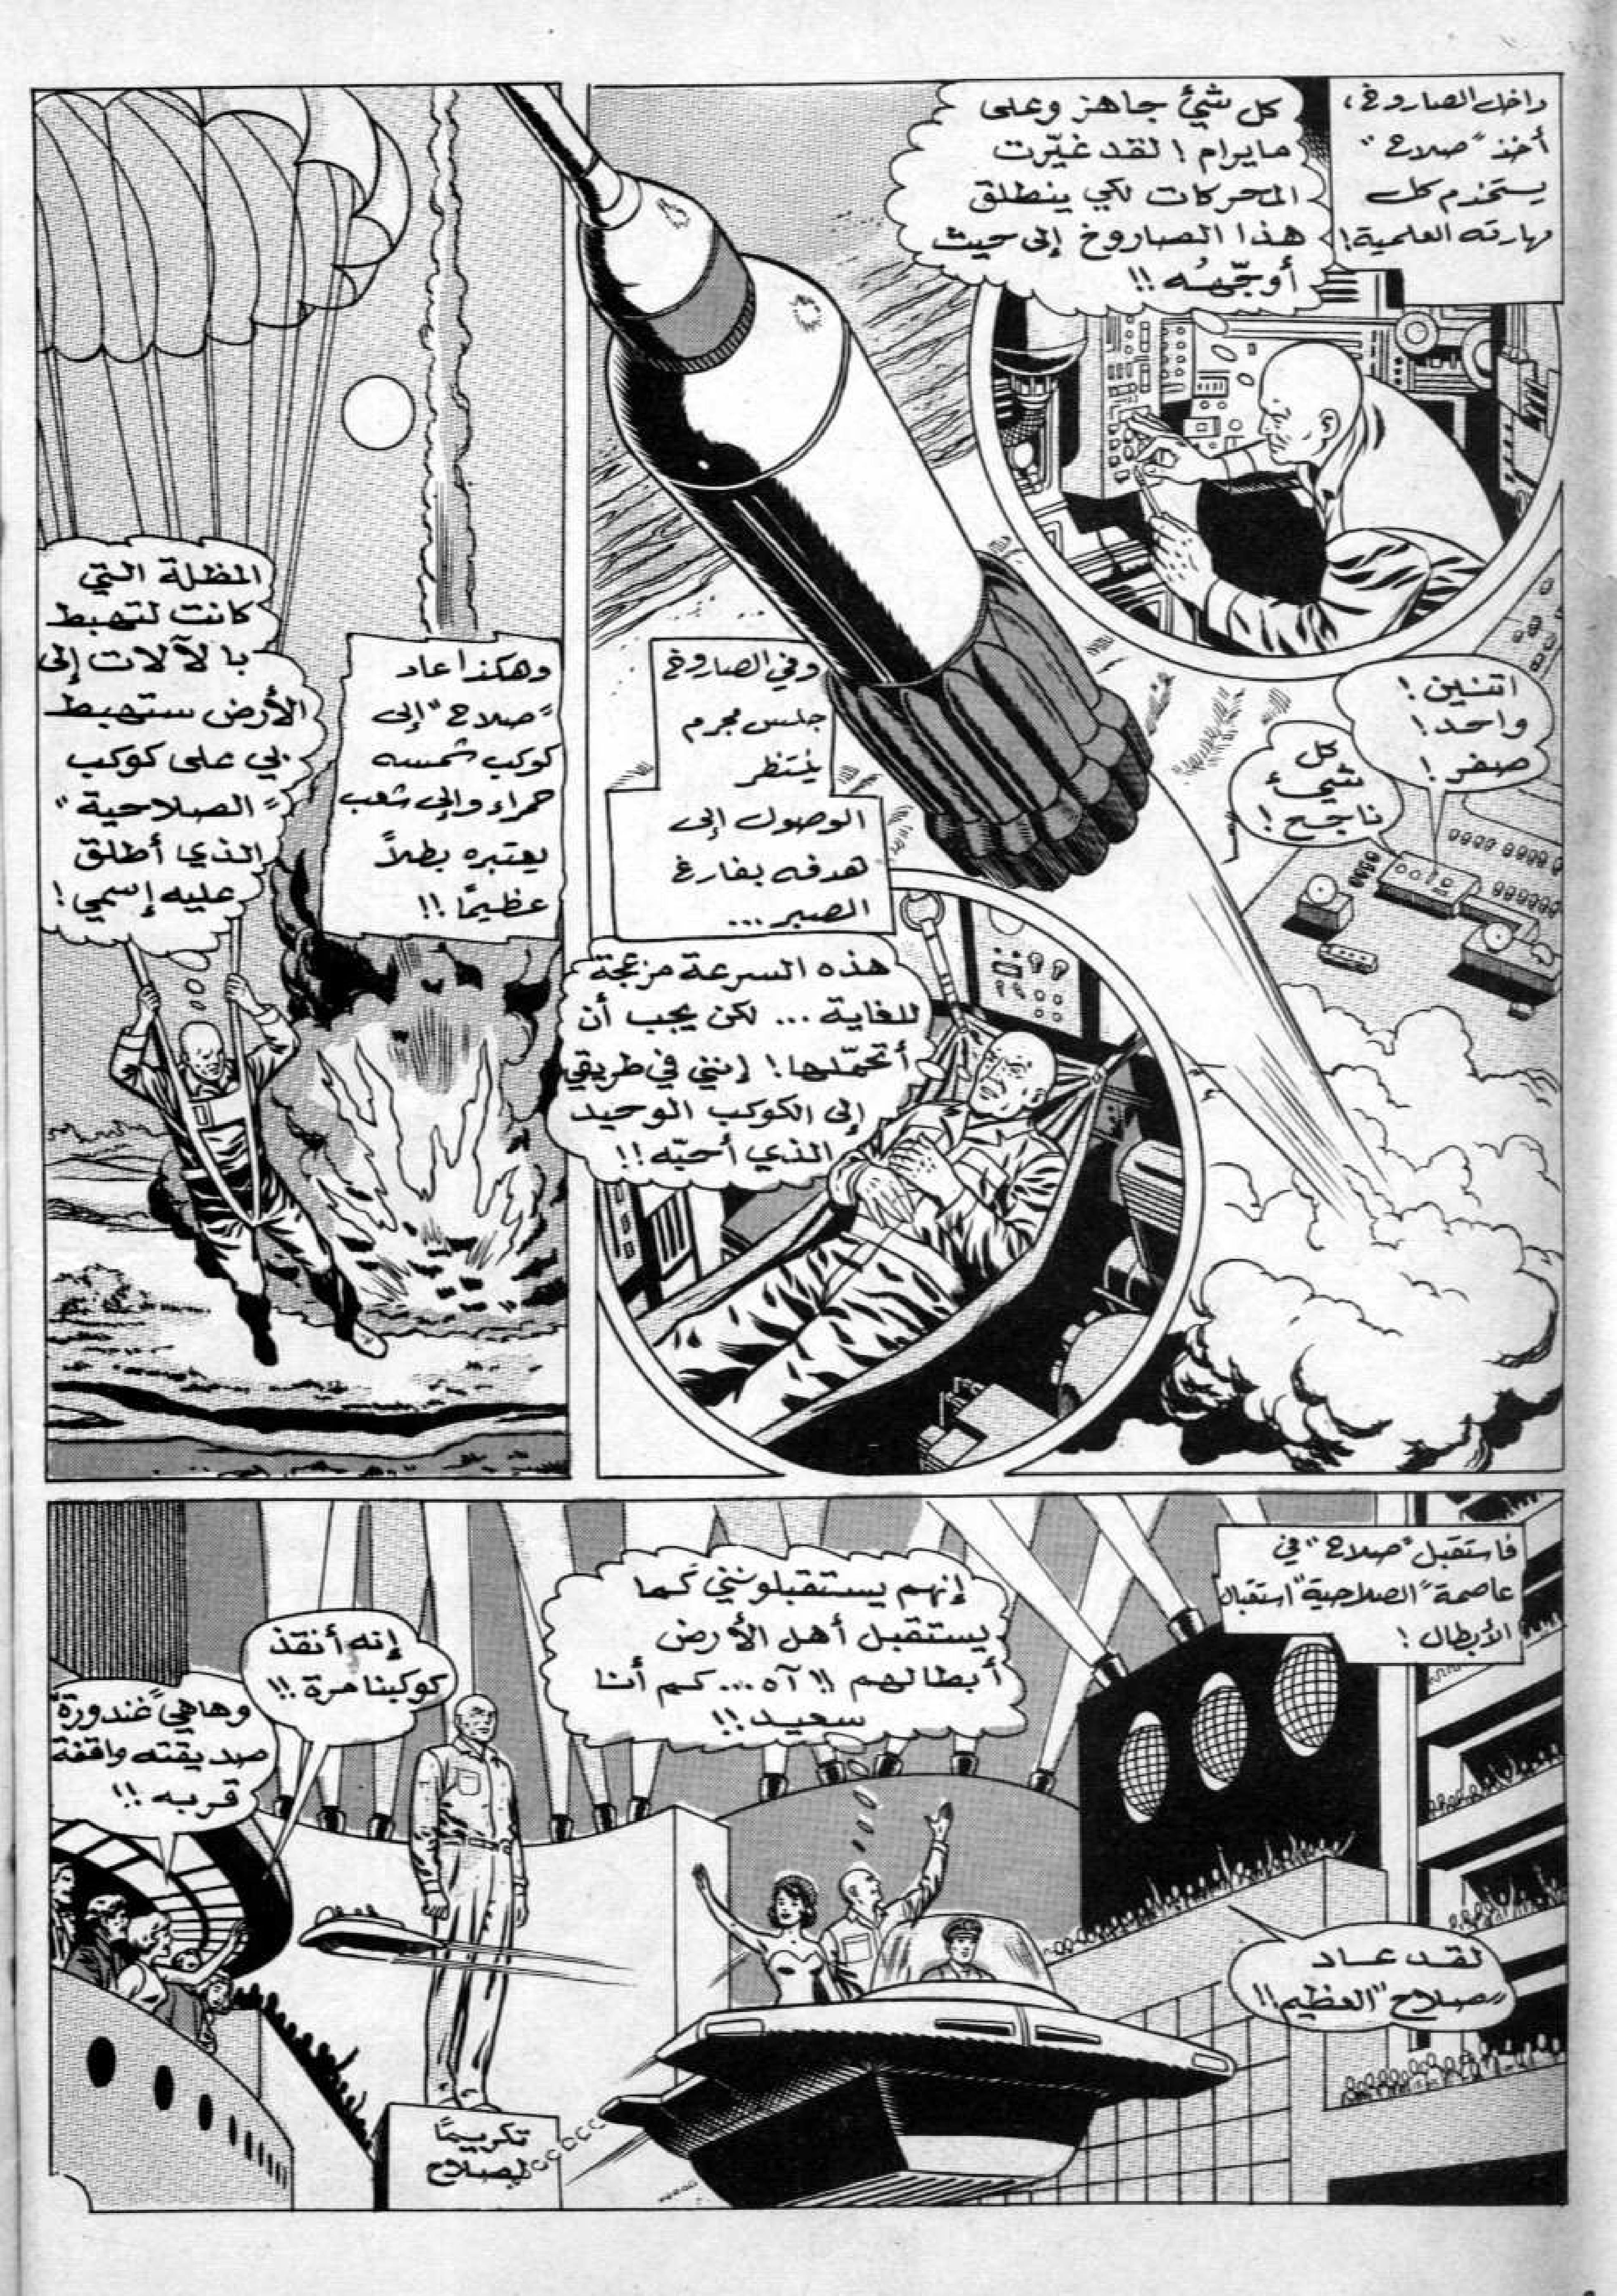 داخل الصاروخ،
أخذ "صلاح"
يستخدم كل
مهارته العلمية!
كل شيئ جاهز وعلى
مايرام! لقد غيّرت
المحركات لكي ينطلق
هذا الصاروخ إلى حيث
أوجّهه!!
اثنين!
واحد!
صفر!
كل
شيء
ناجح!
وفي الصاروخ
جلس مجرم
ينتظر
الوصول إلى
هدفه بفارغ
الصبر...
هذه السرعة مزعجة
للغاية... لكن يجب أن
أتحمّلها! إنني في طريقي
إلى الكوكب الوحيد
الذي أحبّه!!
وهكذا عاد
"صلاح" إلى
كوكب شمسه
حمراء وإلى شعب
يعتبره بطلاً
عظيمًا!!
المظلة التي
كانت لتهبط
بالآلات إلى
الأرض ستهبط
بي على كوكب
"الصلاحية"
الذي أطلق
عليه إسمي!
فاستقبل "صلاح" في
عاصمة "الصلاحية" استقبال
الأبطال!
إنهم يستقبلونني كما
يستقبل أهل الأرض
أبطالهم!! آه... كم أنا
سعيد!!
إنه أنقذ
كوكبنا مرة!!
وهاهي "غندورة"
صديقته واقفة
قربه!!
لقد عاد
"صلاح" العظيم!!
تكريمًا
لصلاح